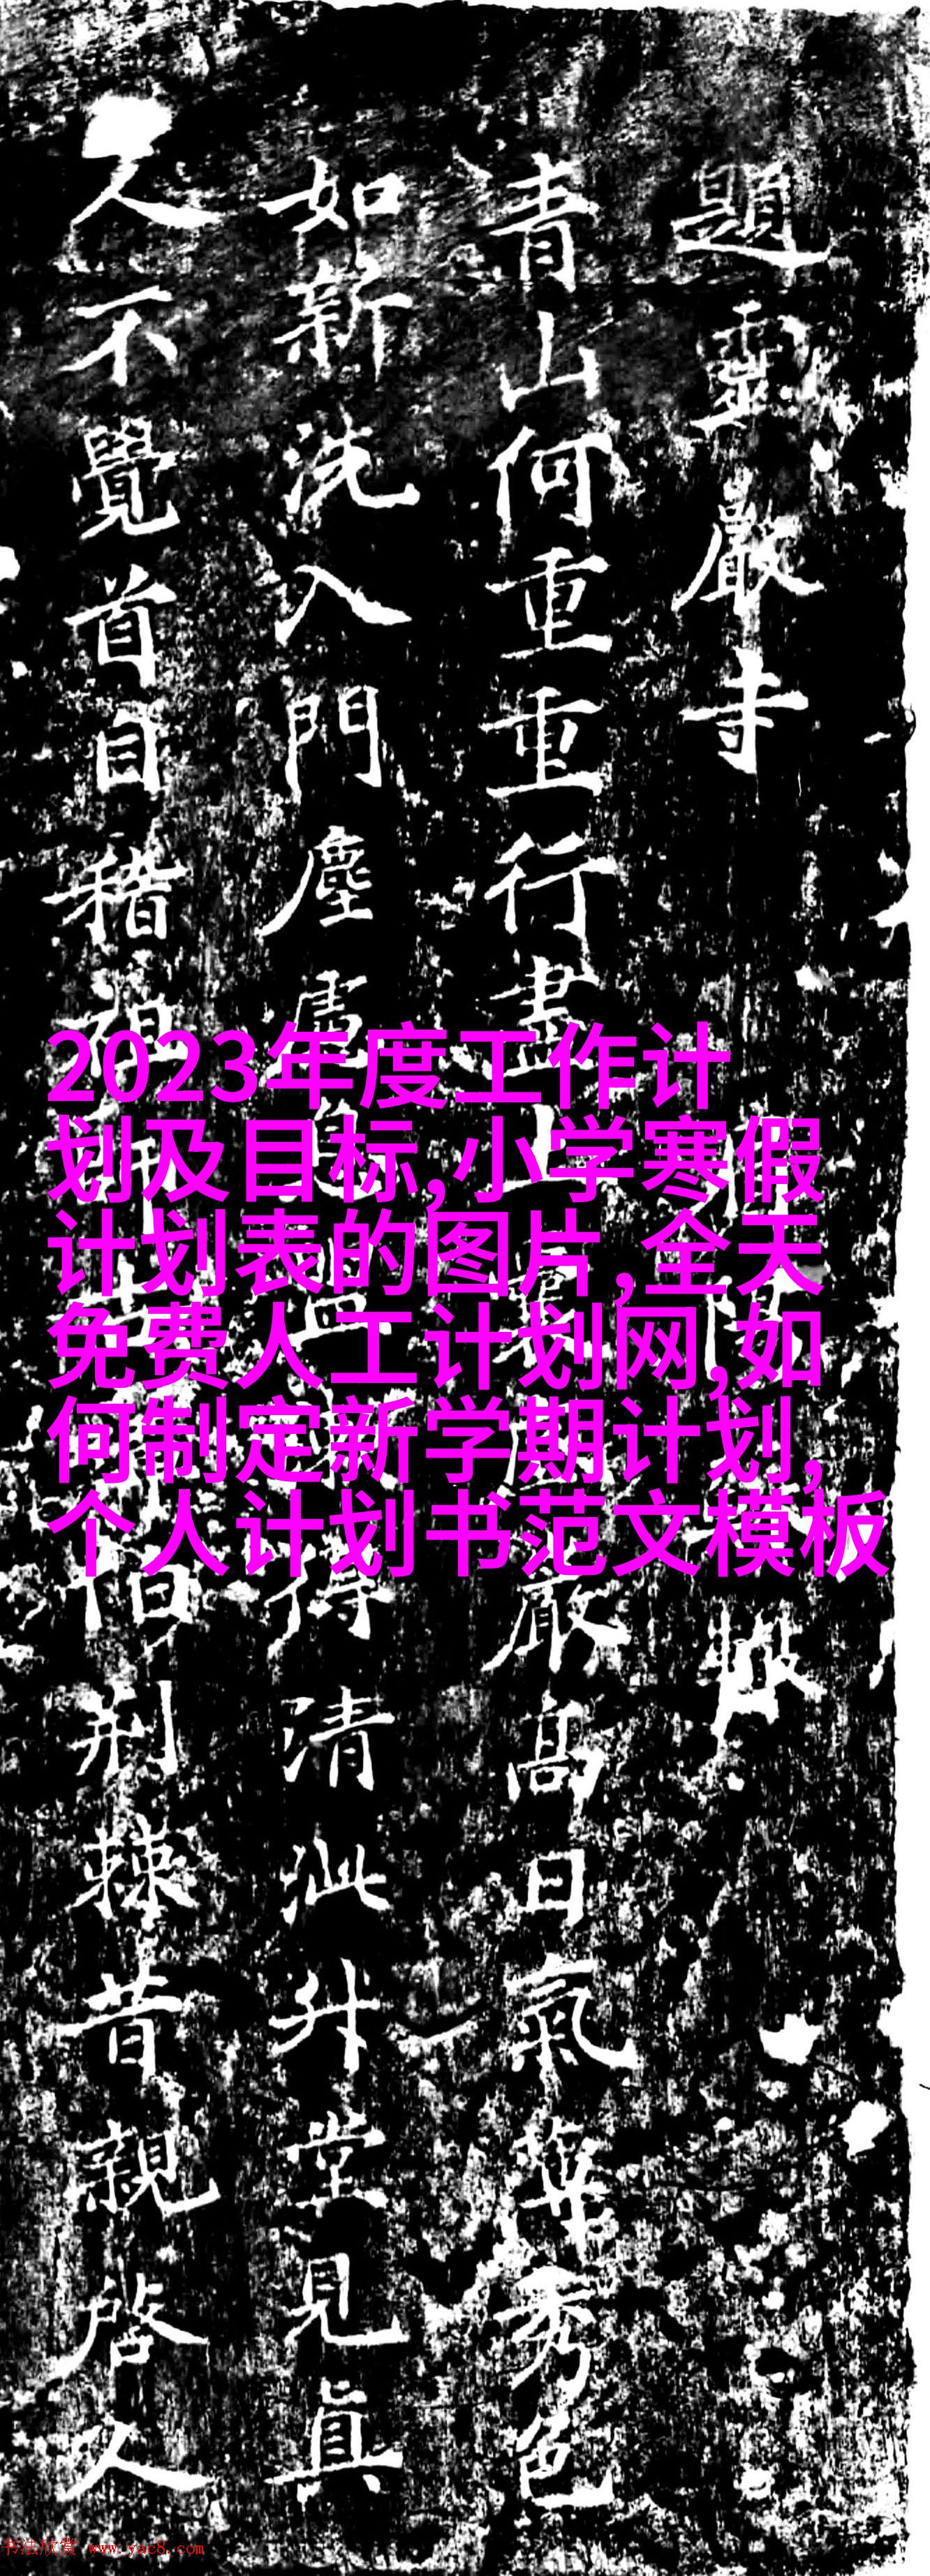 題靈嚴寺
青山何重重行盡嚴高日氣薄秀色
如新洗入門塵慮得清泚升堂見真
人不覺首自稽祖伯荊棘昔親啓人
2023年度工作计
划及目标,小学寒假
计划表的图片,全天
免费人工计划网,如
何制定新学期计划,
个人计划书范文模板
书法欣赏 www.yac8.com